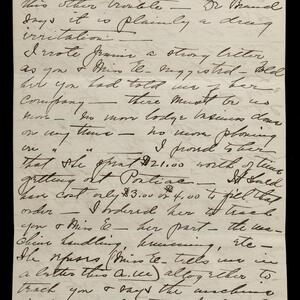 this other trouble — Dr
says it is plainly a drug
irritation —
I wrote Jennie a strong letter
as you & Miss C. suggested — told
her you had told us of her
company — there must be no
more — no more lodge business done
on my time — no more phoning
on " " I proved to her
that she spent $21.00 worth of time
getting out Pontiac — It would
have cost only $3.00 or 4.00 to fill that
order — I ordered her to teach
you & Miss C — her part — the ma-
chine handling, running, etc —
She refuses (Miss C. tells me in
a letter this a.m.) altogether to
teach you & says the machine